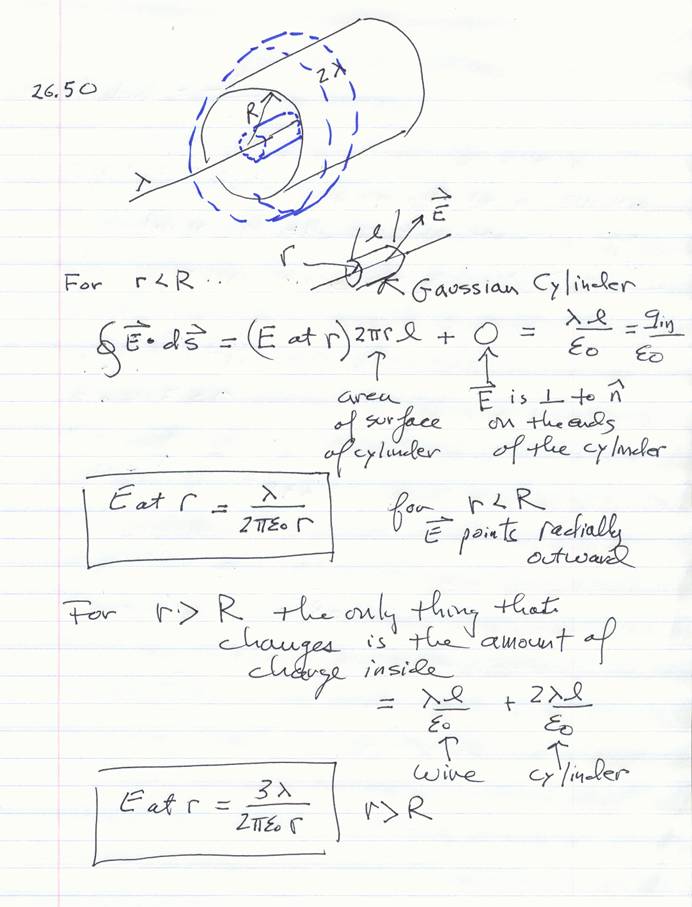 26.50
2λ
R
r
λ
E⃗
l
r
For r < R ..
Gaussian Cylinder
∮ E⃗ • ds⃗ = (E at r) 2πr l + 0 = λl/ε0 = qin/ε0
↑ area of surface of cylinder
↑ E⃗ is ⊥ to n̂ on the ends of the cylinder
E at r = λ/2πε0 r
for r < R
E⃗ points radially
outward
For r > R the only thing that
changes is the amount of
charge inside
= λl/ε0 + 2λl/ε0
↑ wire ↑ cylinder
E at r = 3λ/2πε0 r r > R